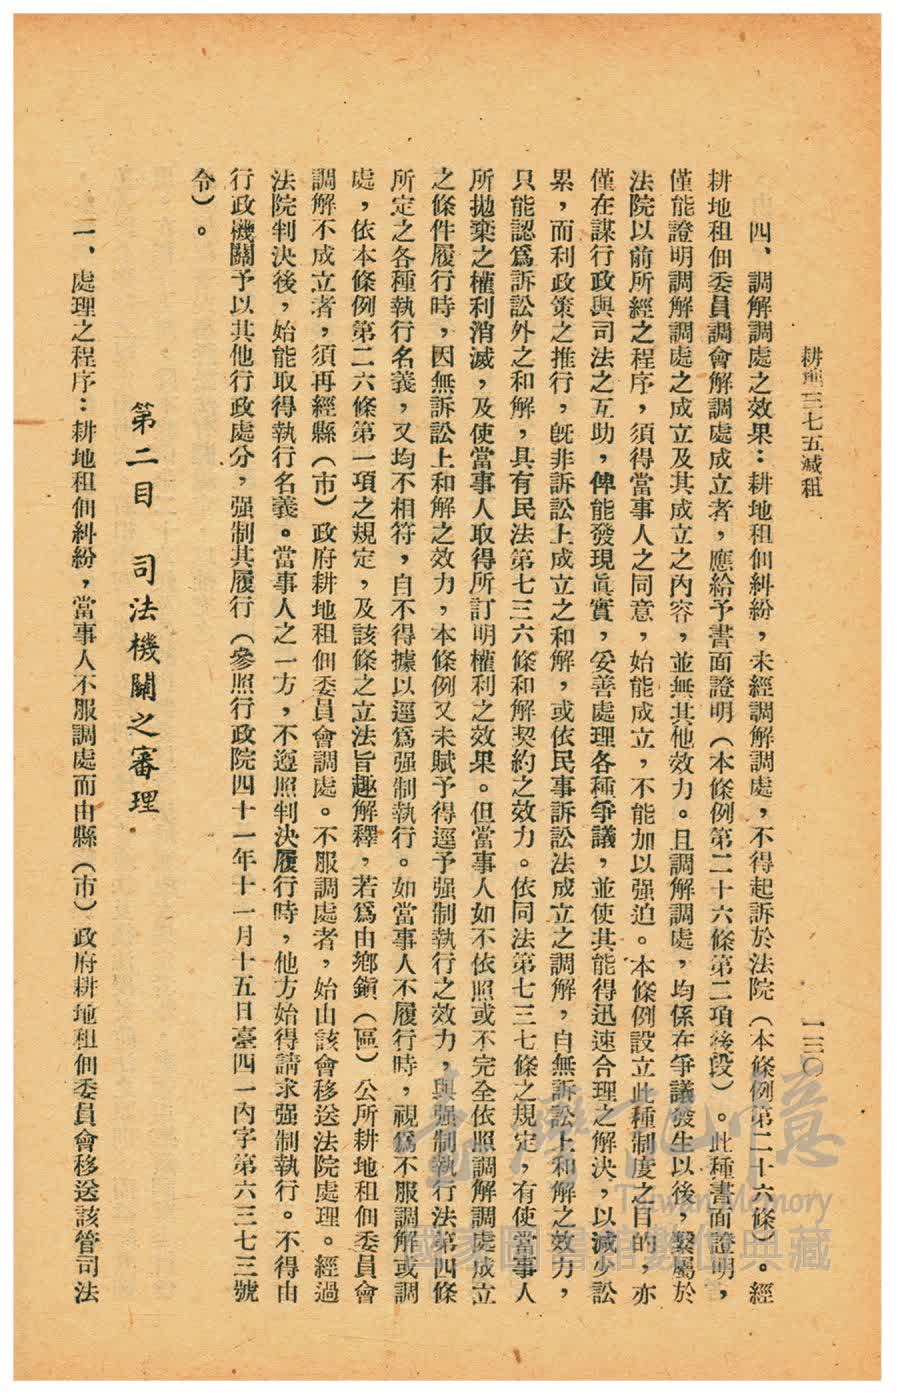 耕地三七五減租
一三〇
四、調解調處之效果：耕地租佃糾紛，未經調解調處，不得起訴於法院（本條例第二十六條）。經
耕地租佃委員調會解調處成立者，應給予書面證明（本條例第二十六條第二項後段）。此種書面證明，
僅能證明調解調處之成立及其成立之內容，並無其他效力。且調解調處，均係在爭議發生以後，繫屬於
法院以前所經之程序，須得當事人之同意，始能成立，不能加以强迫。本條例設立此種制度之目的，亦
僅在謀行政與司法之互助，俾能發現眞實，妥善處理各種爭議，並使其能得迅速合理之解決，以減少訟
累，而利政策之推行，旣非訴訟上成立之和解，或依民事訴訟法成立之調解，自無訴訟上和解之效力，
只能認爲訴訟外之和解，具有民法第七三六條和解契約之效力。依同法第七三七條之規定，有使當事人
所拋棄之權利消滅，及使當事人取得所訂明權利之效果。但當事人如不依照或不完全依照調解調處成立
之條件履行時，因無訴訟上和解之效力，本條例又未賦予得逕予强制執行之效力，與强制執行法第四條
所定之各種執行名義，又均不相符，自不得據以逕爲强制執行。如當事人不履行時，視爲不服調解或調
處，依本條例第二六條第一項之規定，及該條之立法旨趣解釋，若爲由鄉鎭（區）公所耕地租佃委員會
調解不成立者，須再經縣（市）政府耕地租佃委員會調處。不服調處者，始由該會移送法院處理。經過
法院判決後，始能取得執行名義。當事人之一方，不遵照判決履行時，他方始得請求强制執行。不得由
行政機關予以其他行政處分，强制其履行（參照行政院四十一年十一月十五日臺四一內字第六三七三號
令）。
第二目　司法機關之審理
一、處理之程序：耕地租佃糾紛，當事人不服調處而由縣（市）政府耕地租佃委員會移送該管司法
臺灣記憶
Taiwan Memory
國家圖書館數位典藏